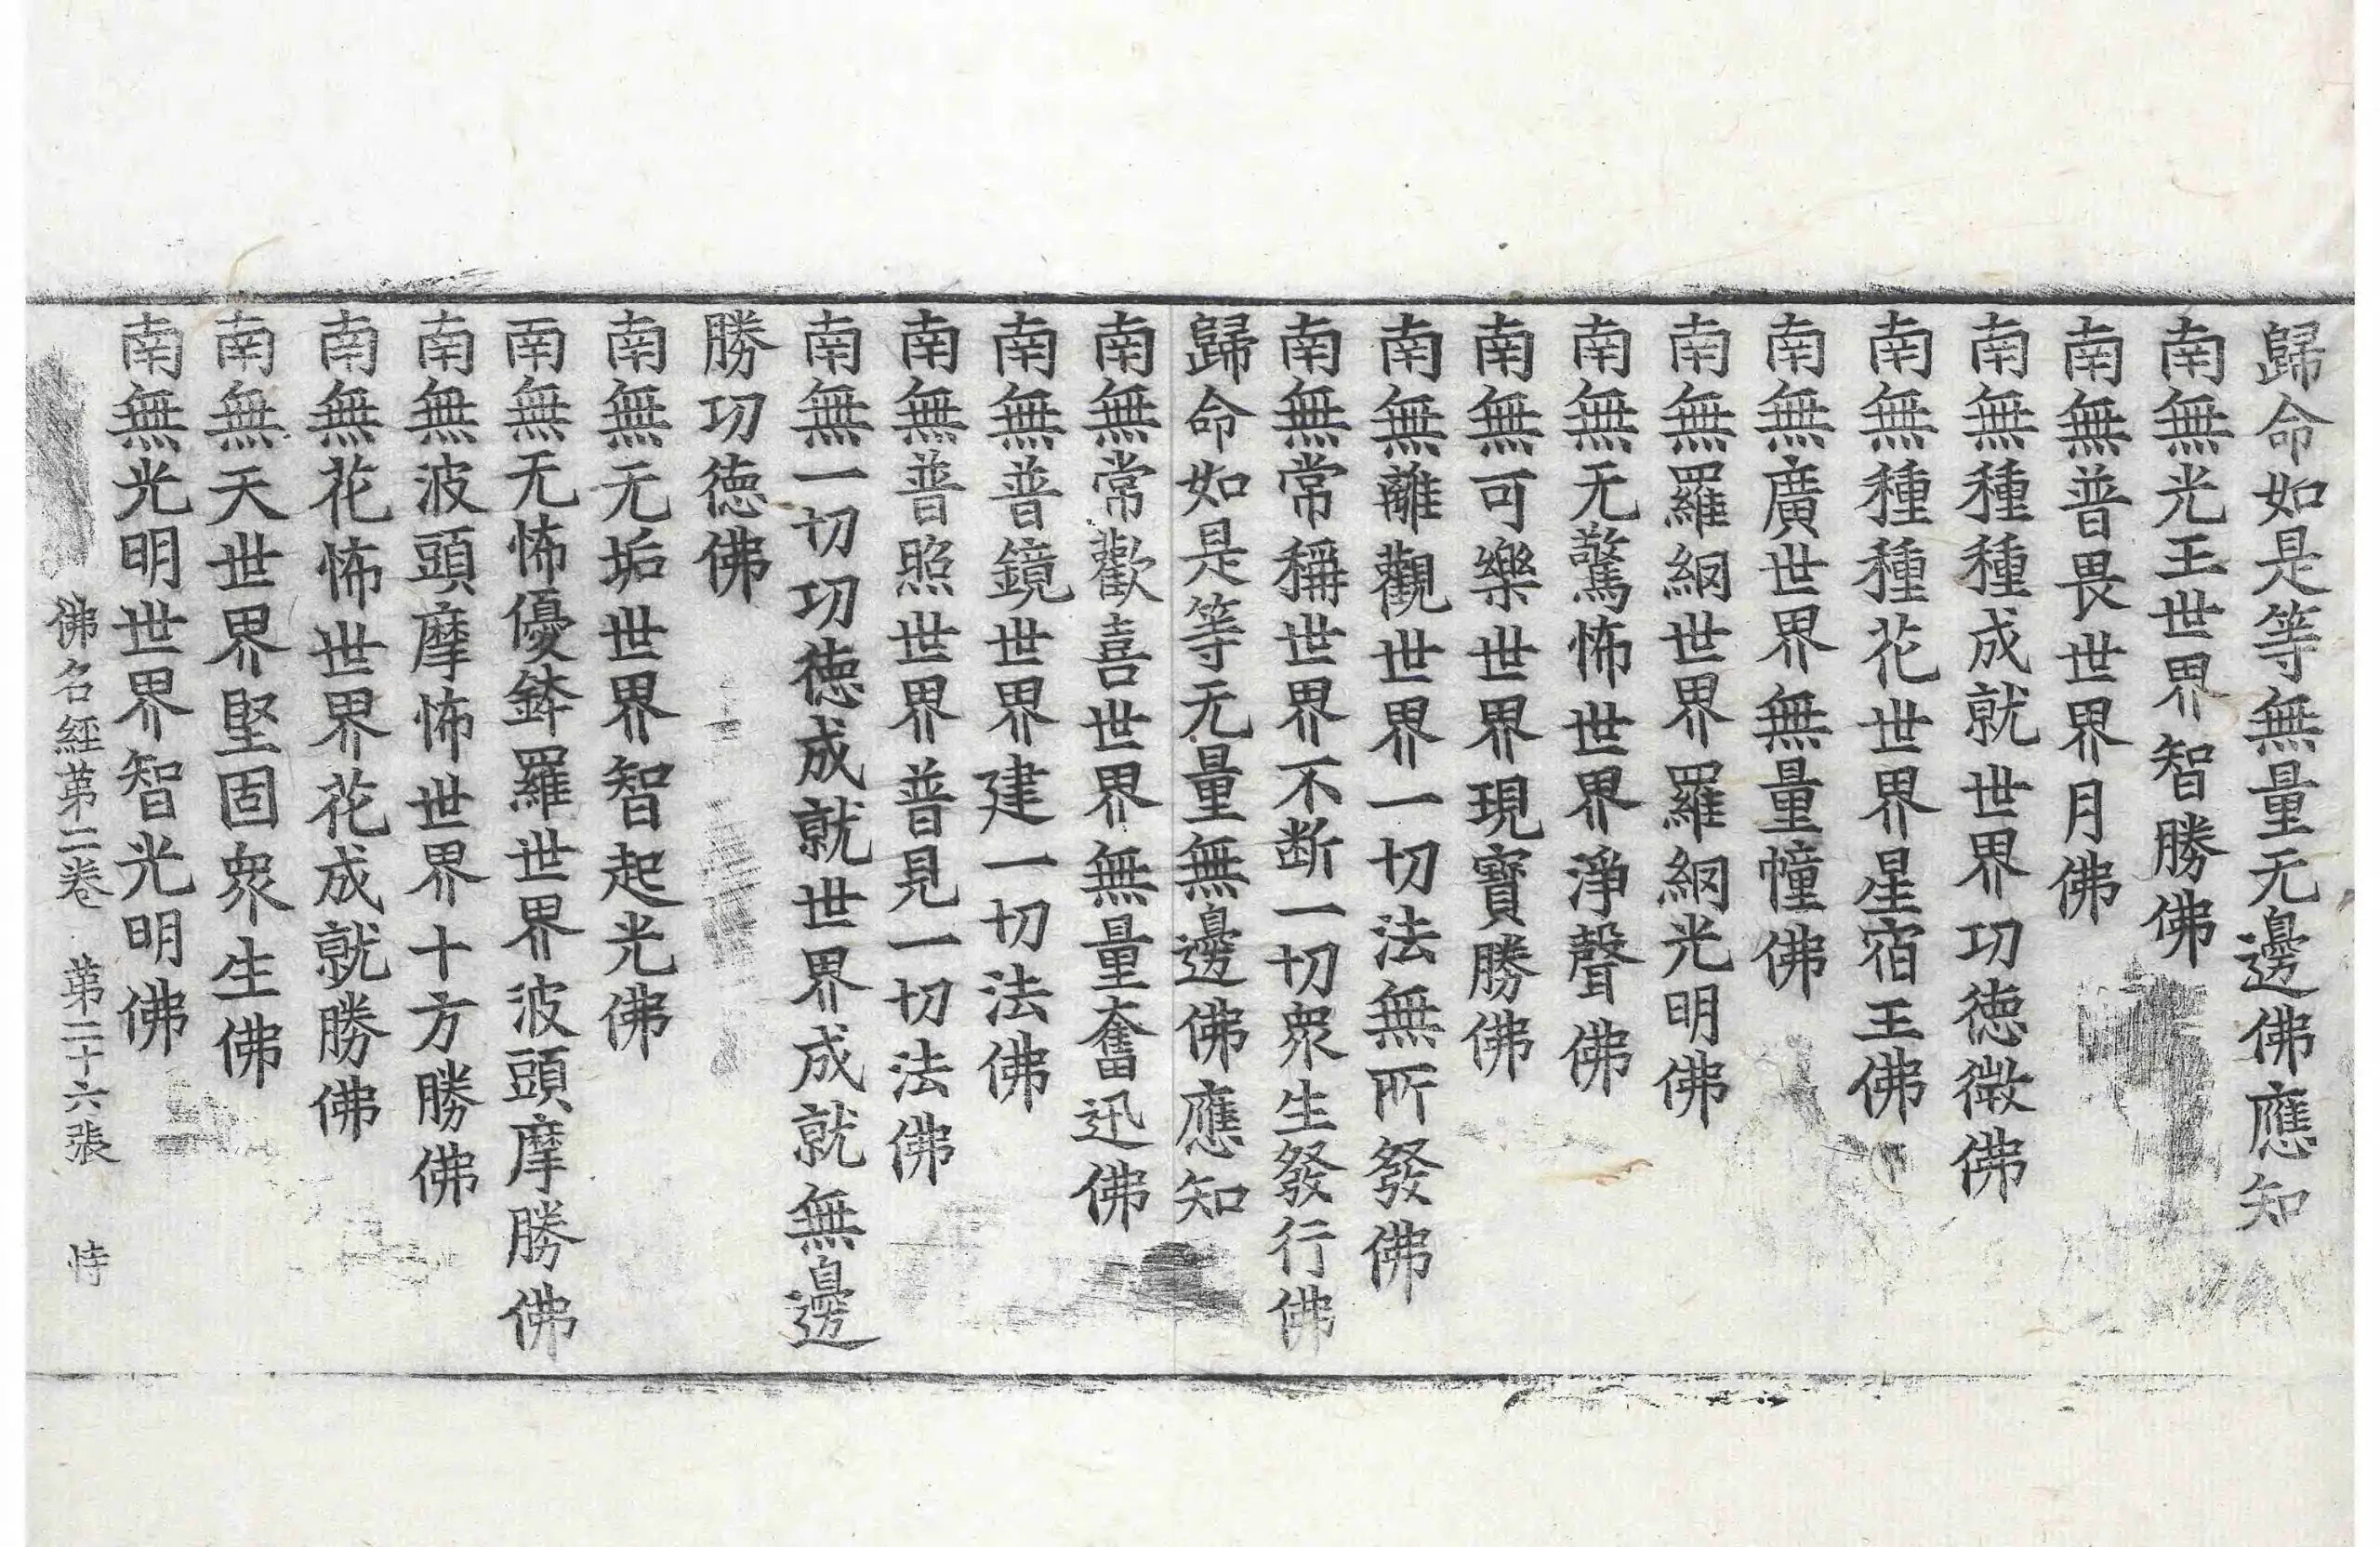 歸命如是等無量无邊佛應知
南無光王世界智勝佛
南無普畏世界月佛
南無種種成就世界功德微佛
南無種種花世界星宿王佛
南無廣世界無量幢佛
南無羅網世界羅網光明佛
南無无驚怖世界淨聲佛
南無可樂世界現寶勝佛
南無離觀世界一切法無所發佛
南無常稱世界不断一切衆生發行佛
歸命如是等无量無邊佛應知
南無常歡喜世界無量奮迅佛
南無普鏡世界建一切法佛
南無普照世界普見一切法佛
南無一切功德成就世界成就無邊
勝功德佛
南無无垢世界智起光佛
南無无怖優鉢羅世界波頭摩勝佛
南無波頭摩怖世界十方勝佛
南無花怖世界花成就勝佛
南無天世界堅固衆生佛
南無光明世界智光明佛
佛名經第二卷 第二十六張 恃